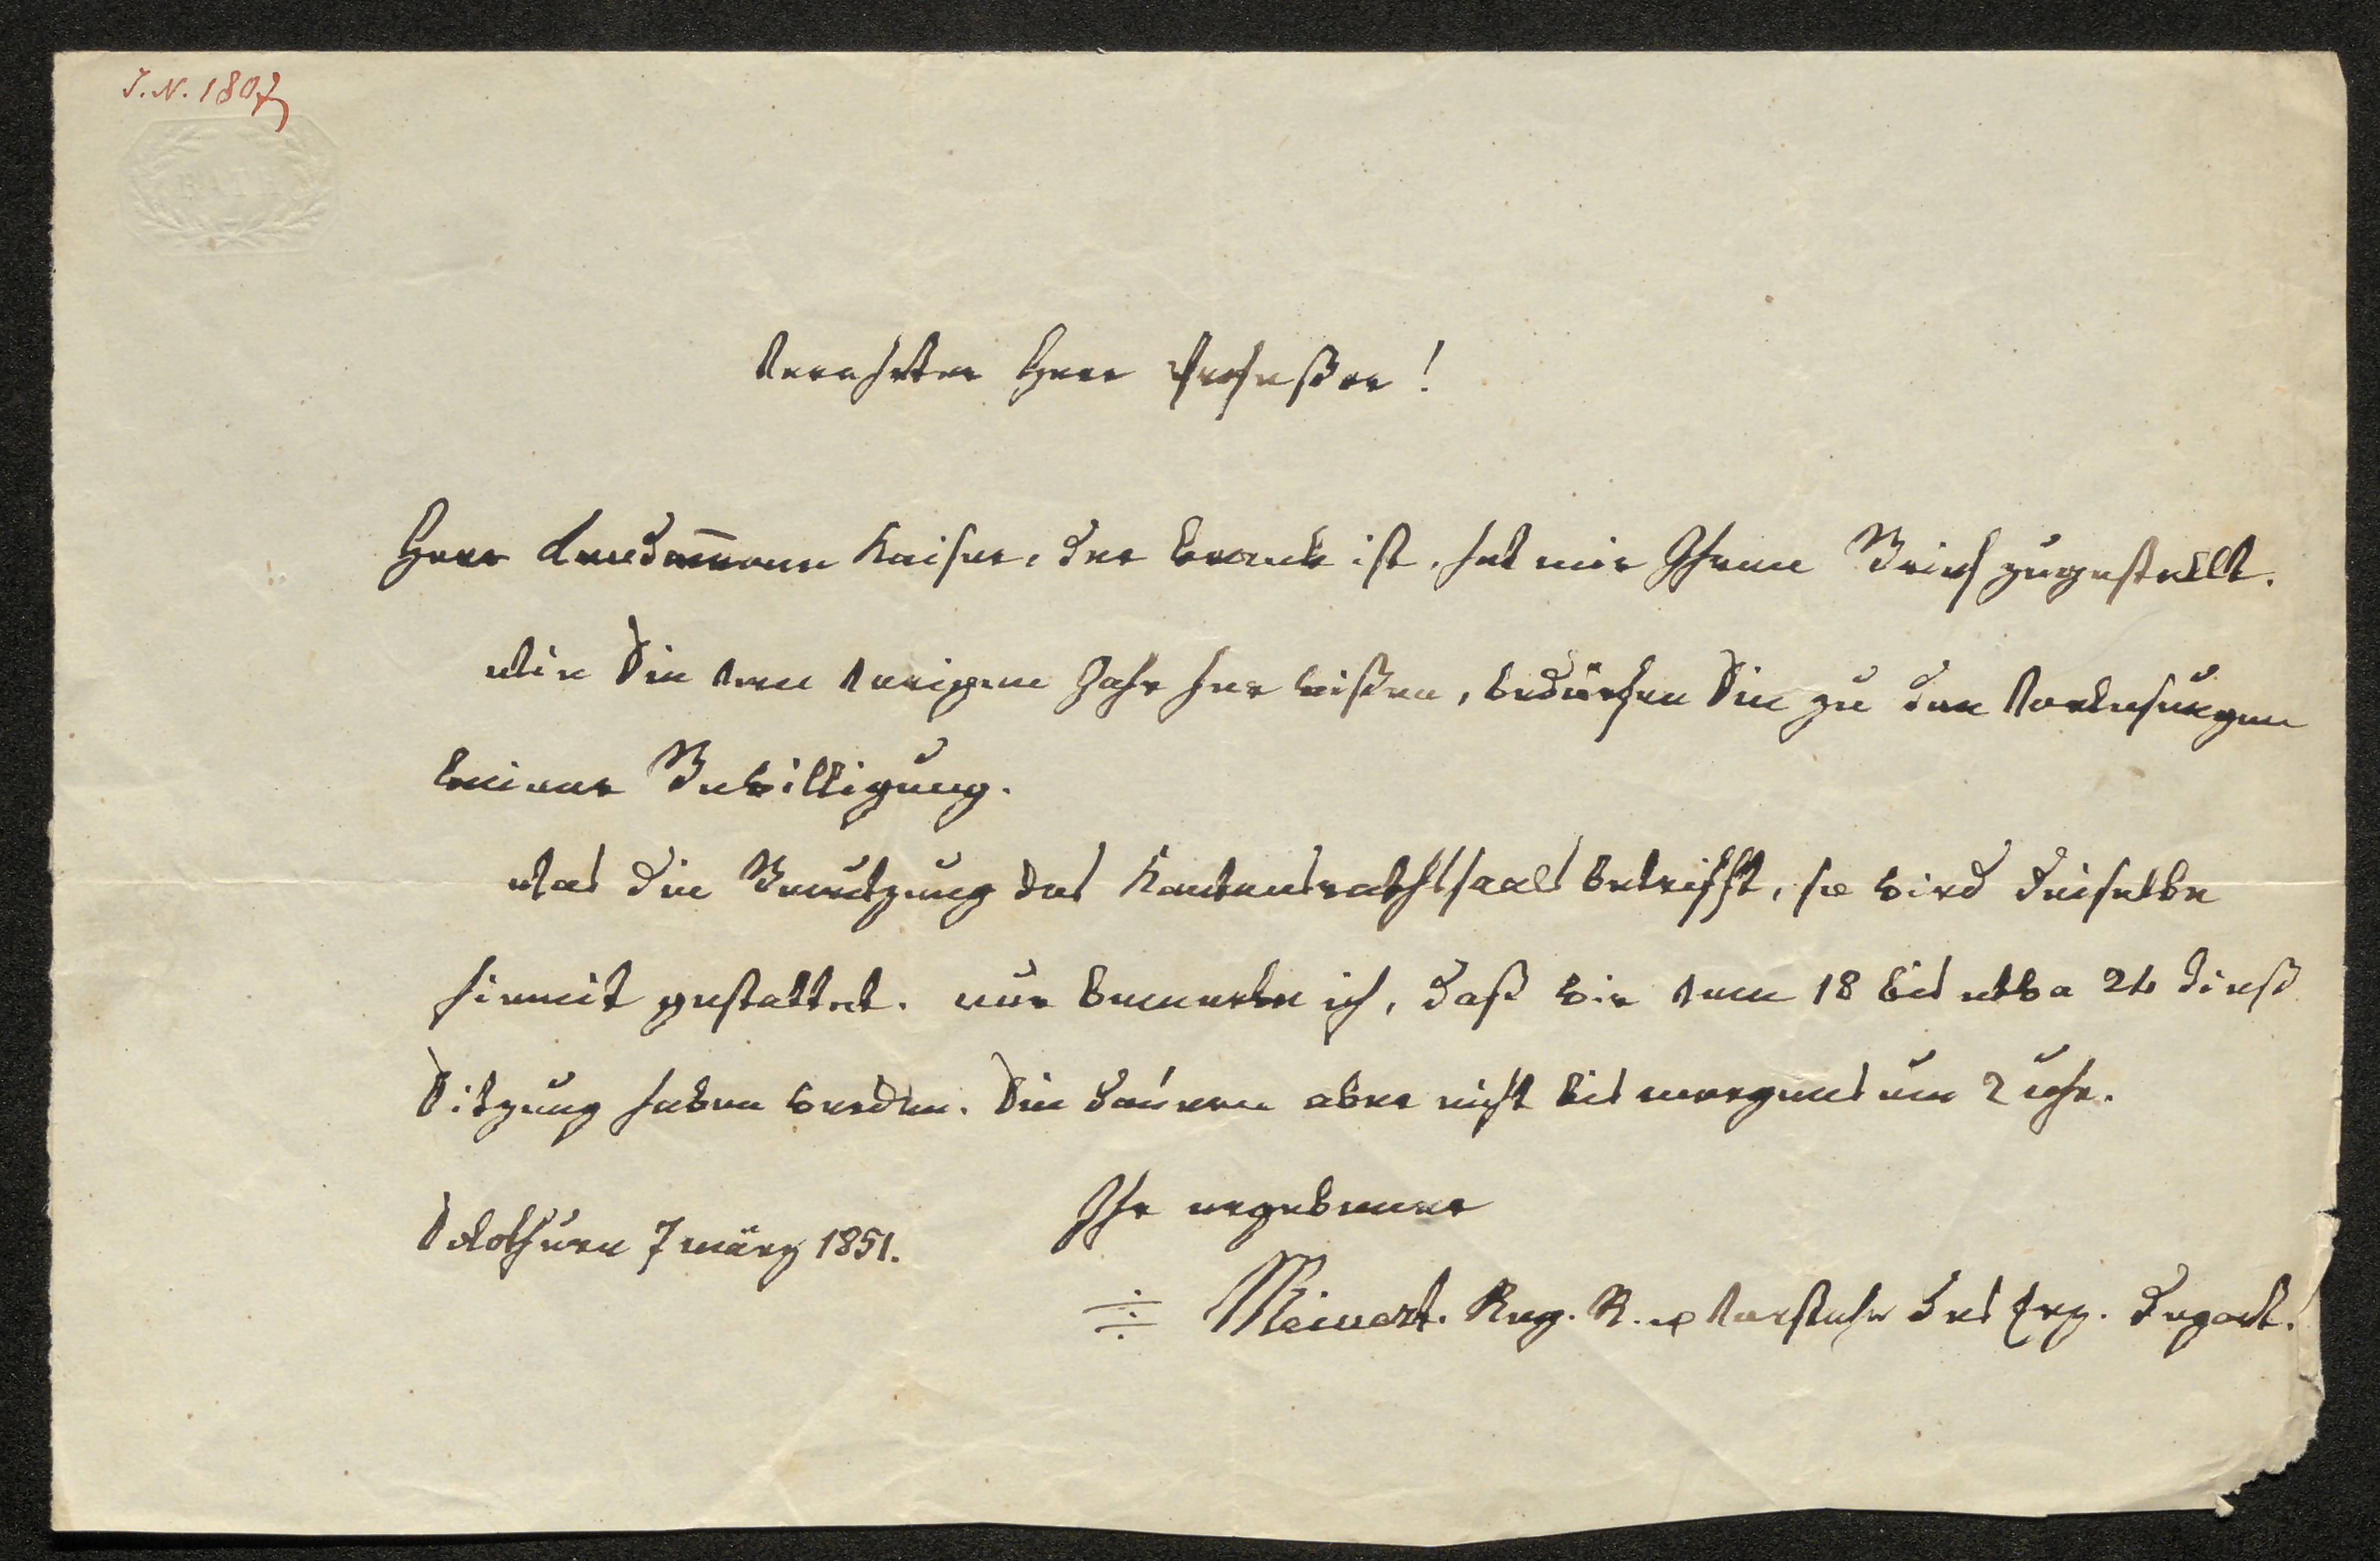 J. N. 1807
BATH
Verehrter Herr Profeßor!
Herr Landam̅mann Kaiser, der krank ist, hat mir Ihren Brief zugestellt.
Wie Sie vom vorigen Jahr her wißen, bedürfen Sie zu den Vorlesungen
keiner Bewilligung.
Was die Benutzung des Kantonsrathssaals betrifft, so wird dieselbe
hiemit gestattet. nur bemerke ich, daß wir vom 18 bis etwa 24 dieß
Sitzung haben werden. Sie dauern aber nicht bis morgens um 2 Uhr.
Ihr ergebener
Solothurn 7 märz 1851.
Reg. R. u Vorsteher des Erz. Depart.